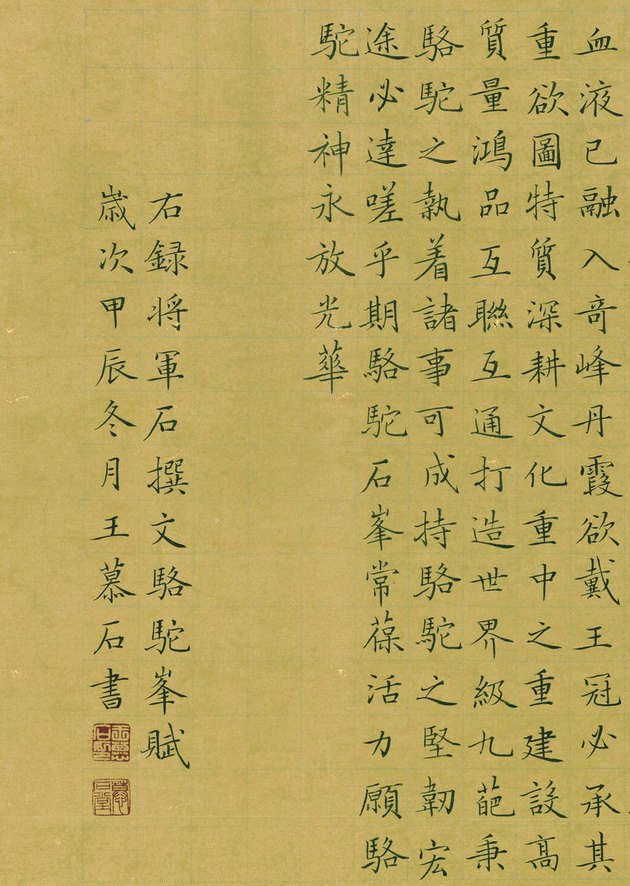 血液已融入奇峰丹霞欲戴王冠必承其
重欲圖特質深耕文化重中之重建設高
質量鴻品互聯互通打造世界級九葩秉
駱駝之執着諸事可成持駱駝之堅韌宏
途必達嗟乎期駱駝石峯常葆活力願駱
駝精神永放光華
右録将軍石撰文駱駝峯賦
歲次甲辰冬月王慕石書